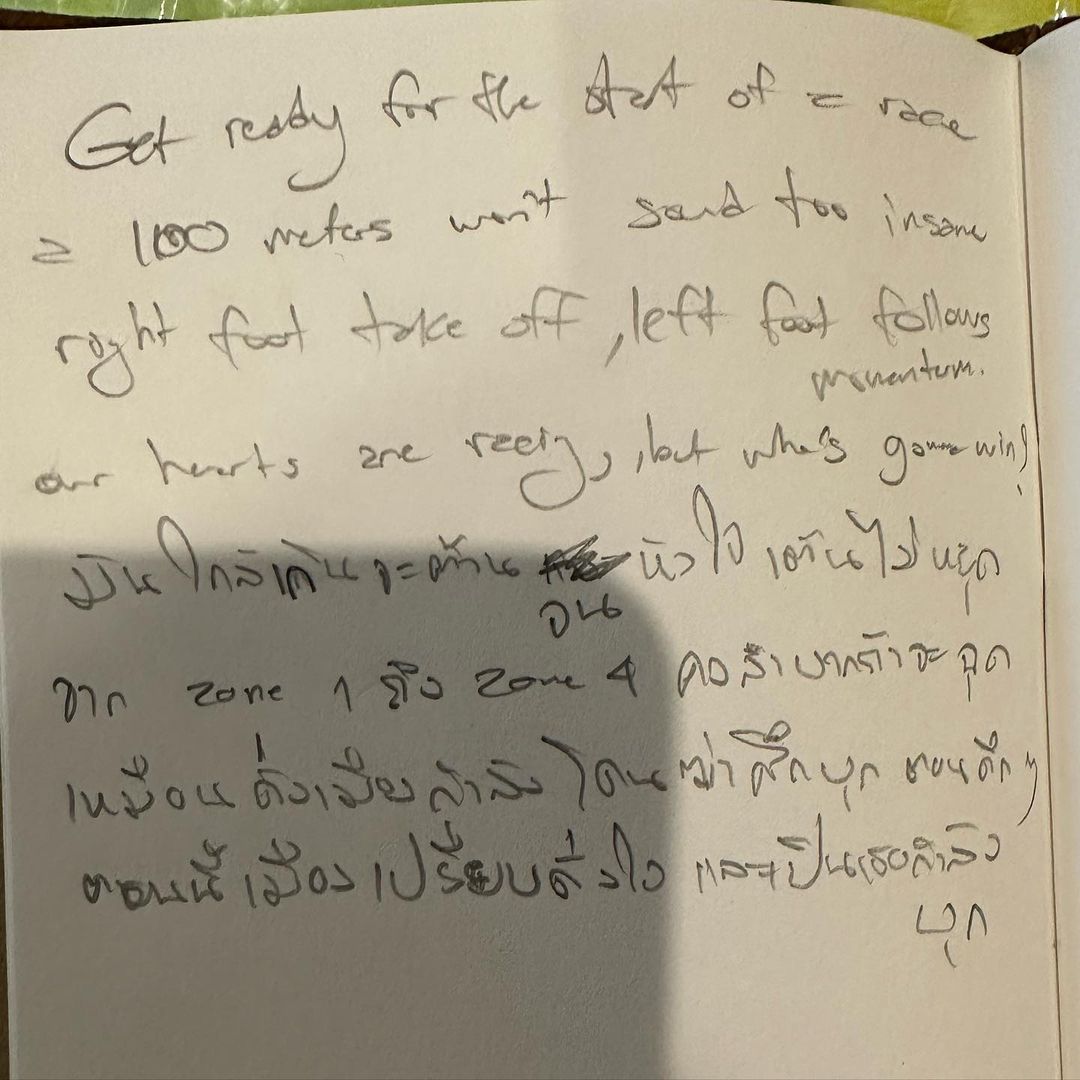 Get ready for the start of a race
a 100 meters won't sound too insane
right foot take off, left foot follows
momentum.
our hearts are racing, but who's gonna win?
มันใกล้เกินจะต้าน หัวใจเต้นไม่หยุด
จน
จาก zone 1 ถึง zone 4 คงลำบากถ้าจะฉุด
เหมือนดั่งเมืองกำลังโดนข้าศึกบุก ตอนดึกๆ
ตอนนี้เมืองเปรียบดั่งใจ และเป็นเธอกำลัง
บุก